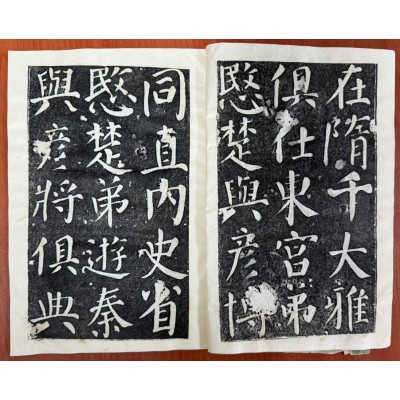 在隋与大雅
俱仕東宮弟
愍楚與彥博
同直内史省
愍楚弟遊秦
與彥將俱典